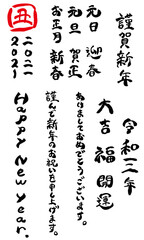 謹賀新年
元日 迎春
元旦 賀正
お正月 新春
丑
二〇二一
2021
令和三年
大吉 福 開運
あけましておめでとうございます。
謹んで新年のお祝いを申し上げます。
Happy New Year.